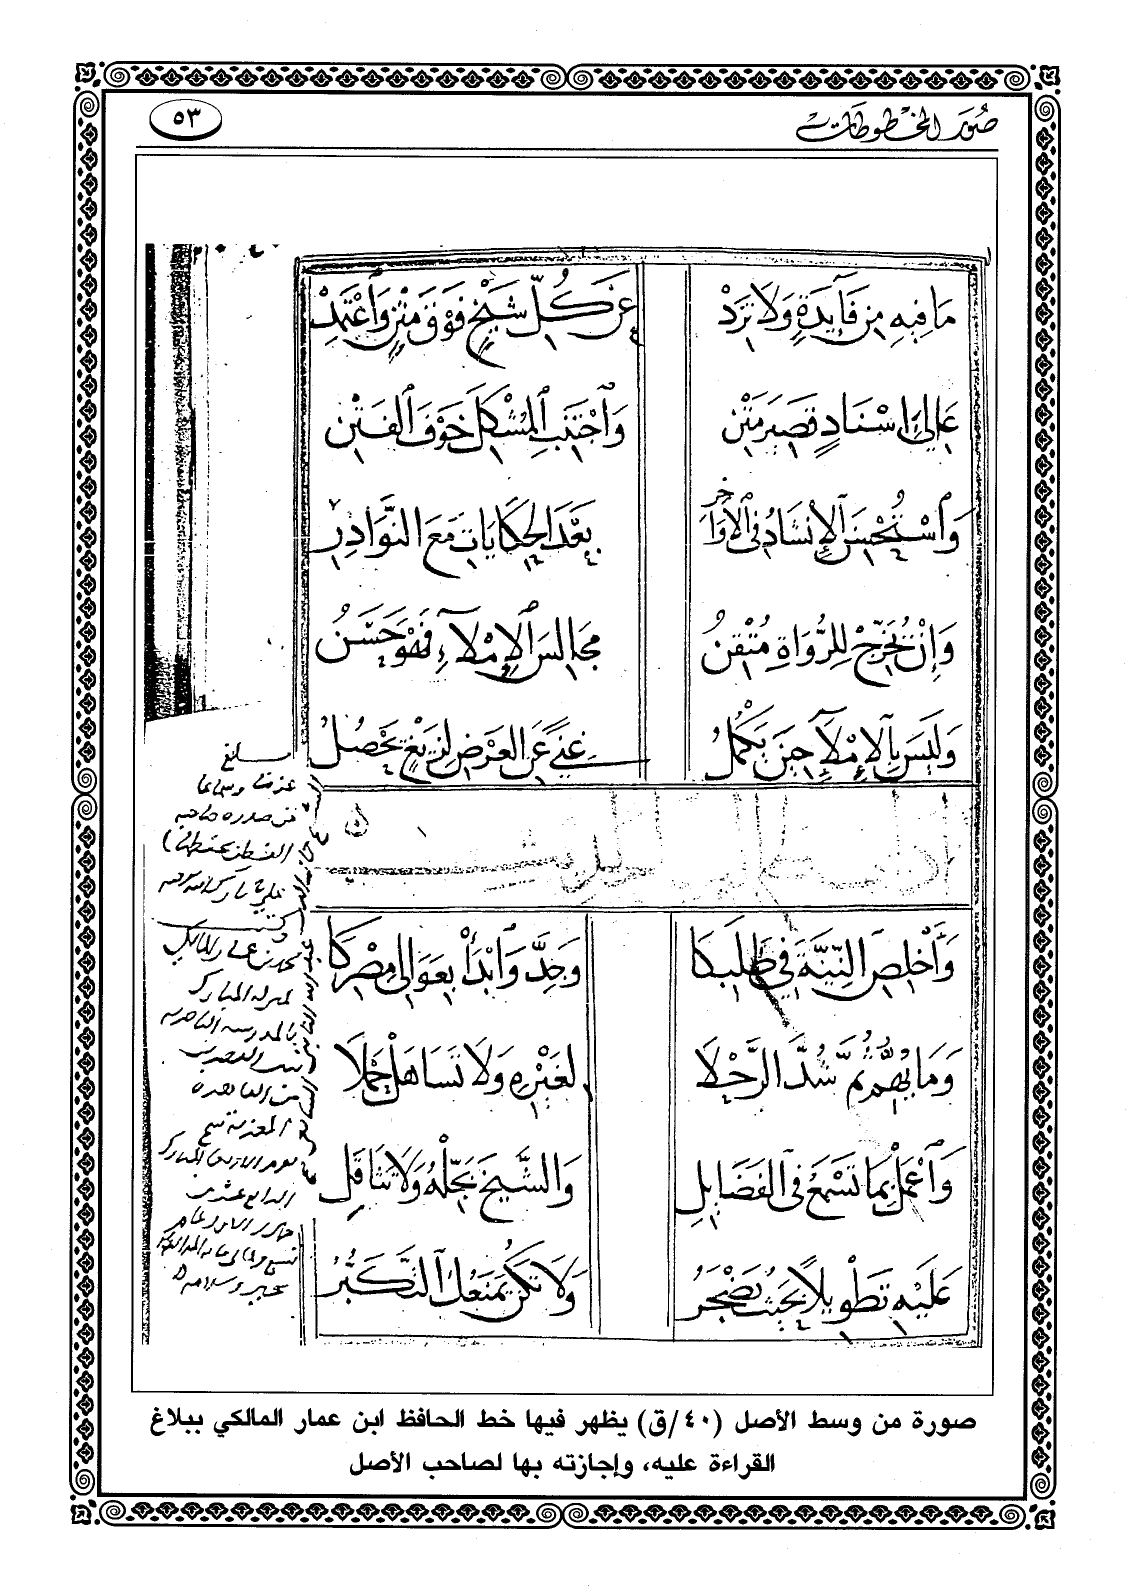 صُوَر المخطوطات
٥٣
مَا فِيهِ مِن فَايِدَةٍ وَلَا تَزِدْ عَن كُلِّ شَيْخٍ فَوْقَ مَتْنٍ وَاَعْتَمِدْ
عَالِيَ اِسْنَادٍ قَصِيرَ مَتْنِ وَاَجْتَنِبِ اَلمُشْكِلَ خَوْفَ اَلفَتْنِ
وَاَسْتُحْسِنَ اَلاِنْشَادُ فِي اَلاَوَاخِرِ بَعْدَ الحِكَايَاتِ مَعَ النَّوَادِرِ
وَاِنْ يُخَرِّجْ لِلرُّوَاةِ مُتْقِنُ مَجَالِسَ اَلاِمْلَآءِ فَهْوَ حَسَنُ
وَلَيْسَ بِاَلاِمْلَآءِ حِينَ يَكْمُلُ غِنًى عَنِ العَرْضِ لِزَيْغٍ يَحْصُلُ
اداب طالب الحديث
وَاَخْلِصِ النِّيَّةَ فِي طَلَبِكَا وَجِدَّ وَاَبْدَأْ بِعَوَالِي مِصْرِكَا
وَمَا يُهِمُّ ثُمَّ شُدَّ الرَّحْلَا لِغَيْرِهِ وَلَا تَسَاهَلْ حَمْلَا
وَاَعْمَلْ بِمَا تَسْمَعُ فِي الفَضَايِلِ وَالشَّيْخَ بَجِّلْهُ وَلَا تَثَاقَلِ
عَلَيْهِ تَطْوِيلاً بِحَيْثُ يَضْجَرُ وَلَا تَكُنْ يَمْنَعُكَ اَلتَّكَبُّرُ
بلغ
عرضا وسماعا
من صدره صاحبه
وكتب
محمد بن عمار المالكي
بمنزله المبارك
بالمدرسه الناصريه
بين القصرين
من القاهره
المعزية
صورة من وسط الأصل (٤٠/ق) يظهر فيها خط الحافظ ابن عمار المالكي ببلاغ
القراءة عليه، وإجازته بها لصاحب الأصل